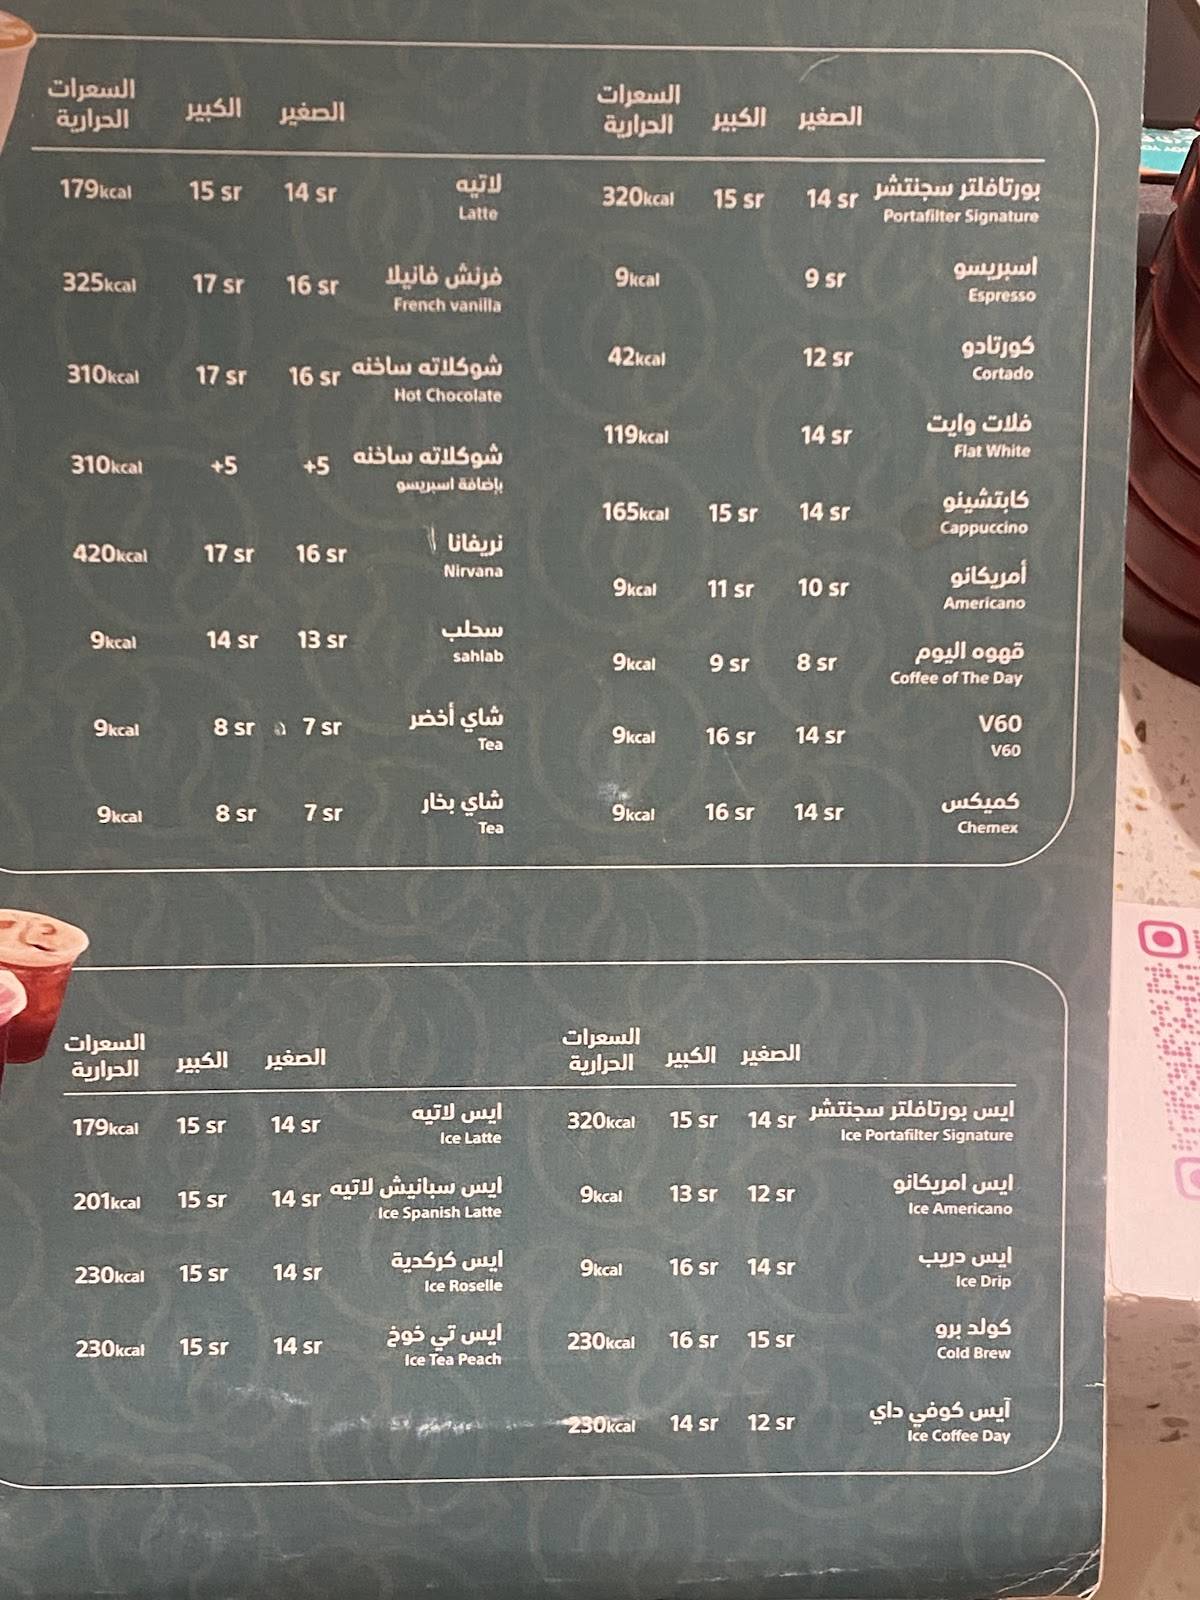 الصغير الكبير السعرات الحرارية
بورتافلتر سجنتشر 14 sr 15 sr 320kcal
Portafilter Signature
اسبريسو 9 sr 9kcal
Espresso
كورتادو 12 sr 42kcal
Cortado
فلات وايت 14 sr 119kcal
Flat White
كابتشينو 14 sr 15 sr 165kcal
Cappuccino
أمريكانو 10 sr 11 sr 9kcal
Americano
قهوه اليوم 8 sr 9 sr 9kcal
Coffee of The Day
V60 14 sr 16 sr 9kcal
V60
كميكس 14 sr 16 sr 9kcal
Chemex
الصغير الكبير السعرات الحرارية
لاتيه 14 sr 15 sr 179kcal
Latte
فرنش فانيلا 16 sr 17 sr 325kcal
French vanilla
شوكلاته ساخنه 16 sr 17 sr 310kcal
Hot Chocolate
شوكلاته ساخنه +5 +5 310kcal
بإضافة اسبريسو
نريفانا 16 sr 17 sr 420kcal
Nirvana
سحلب 13 sr 14 sr 9kcal
sahlab
شاي أخضر 7 sr 8 sr 9kcal
Tea
شاي بخار 7 sr 8 sr 9kcal
Tea
الصغير الكبير السعرات الحرارية
ايس بورتافلتر سجنتشر 14 sr 15 sr 320kcal
Ice Portafilter Signature
ايس امريكانو 12 sr 13 sr 9kcal
Ice Americano
ايس دريب 14 sr 16 sr 9kcal
Ice Drip
كولد برو 15 sr 16 sr 230kcal
Cold Brew
آيس كوفي داي 12 sr 14 sr 230kcal
Ice Coffee Day
الصغير الكبير السعرات الحرارية
ايس لاتيه 14 sr 15 sr 179kcal
Ice Latte
ايس سبانيش لاتيه 14 sr 15 sr 201kcal
Ice Spanish Latte
ايس كركدية 14 sr 15 sr 230kcal
Ice Roselle
ايس تي خوخ 14 sr 15 sr 230kcal
Ice Tea Peach